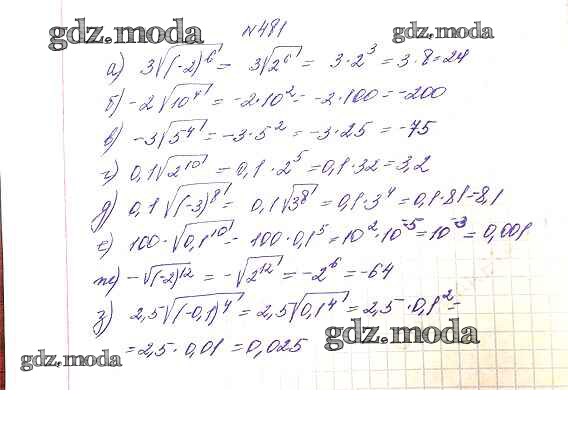 gdz.moda №481 gdz.moda
а) 3√(-2)⁶ = 3√2⁶ = 3·2³ = 3·8=24
б) -2√10⁴ = -2·10² = -2·100 = -200
в) -3√5⁴ = -3·5² = -3·25 = -75
г) 0,1√2¹⁰ = 0,1·2⁵ = 0,1·32 = 3,2
д) 0,1√(-3)⁸ = 0,1√3⁸ = 0,1·3⁴ = 0,1·81=8,1
е) 100·√0,1¹⁰ = 100·0,1⁵ = 10²·10⁻⁵ = 10⁻³ = 0,001
ж) -√(-2)¹² = -√2¹² = -2⁶ = -64
з) 2,5√(-0,1)⁴ = 2,5√0,1⁴ = 2,5·0,1² =
= 2,5·0,01 = 0,025
gdz.moda gdz.moda